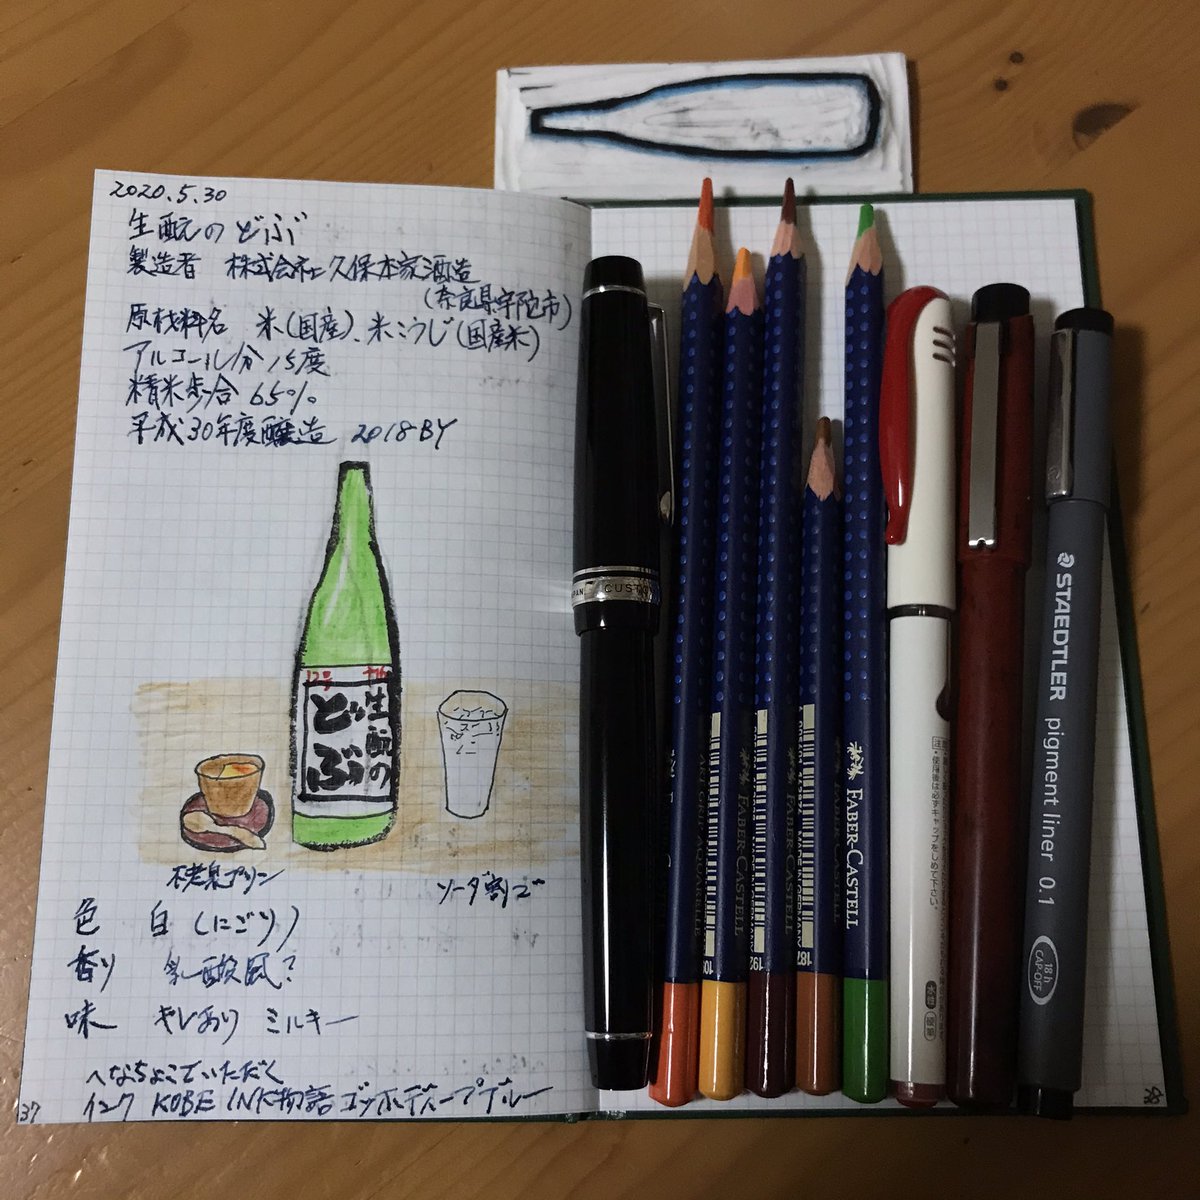 2020.5.30
生酛のどぶ
製造者 株式会社久保本家酒造
(奈良県宇陀市)
原材料名 米(国産)、米こうじ(国産米)
アルコール分 15度
精米歩合 65%
平成30年度醸造 2018BY
生酛の
どぶ
不老泉プリン
ソーダ割で
色 白(にごり)
香り 乳酸風?
味 キレあり ミルキー
へなちょこでいただく
インク KOBE INK物語 ゴッホディープブルー
37
CUSTO
FABER-CASTELL
FABER-CASTELL
FABER-CASTELL
ART GRIP AQUARELLE
MADE IN GERMANY
192
187
STAEDTLER
pigment liner 0.1
18 h
CAP-OFF
38